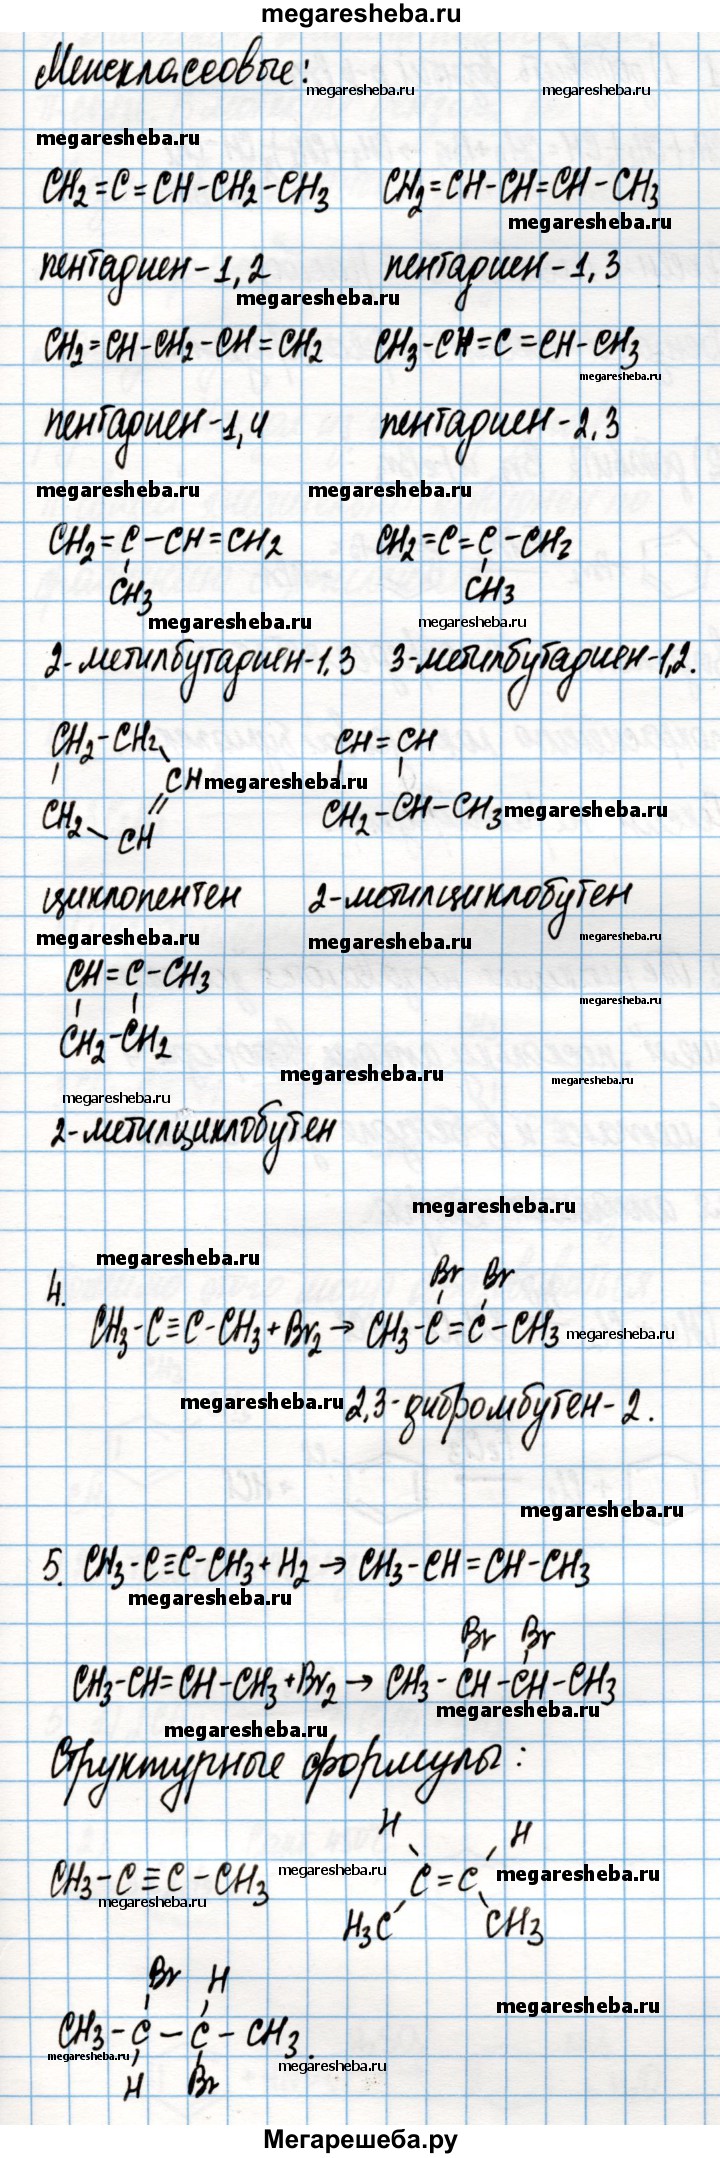 megaresheba.ru
Межклассовые:
megaresheba.ru megaresheba.ru
megaresheba.ru
CH2=C=CH-CH2-CH3 CH2=CH-CH=CH-CH3
megaresheba.ru
пентадиен-1,2 пентадиен-1,3
megaresheba.ru
CH2=CH-CH2-CH=CH2 CH3-CH=C=CH-CH3
megaresheba.ru
пентадиен-1,4 пентадиен-2,3
megaresheba.ru megaresheba.ru
CH2=C-CH=CH2 CH2=C=C-CH2
CH3 CH3
megaresheba.ru megaresheba.ru
2-метилбутадиен-1,3 3-метилбутадиен-1,2.
CH2-CH2 CH=CH
CH megaresheba.ru
CH2 CH CH2-CH-CH3 megaresheba.ru
циклопентен 2-метилциклобутен
megaresheba.ru megaresheba.ru megaresheba.ru
CH=C-CH3
megaresheba.ru
CH2-CH2
megaresheba.ru megaresheba.ru
megaresheba.ru
2-метилциклобутен
megaresheba.ru
megaresheba.ru
Br Br
4. CH3-C≡C-CH3+Br2→CH3-C=C-CH3 megaresheba.ru
megaresheba.ru 2,3-дибромбутен-2.
megaresheba.ru
5. CH3-C≡C-CH3+H2→CH3-CH=CH-CH3
megaresheba.ru
Br Br
CH3-CH=CH-CH3+Br2→CH3-CH-CH-CH3
megaresheba.ru
megaresheba.ru
Структурные формулы:
H H
CH3-C≡C-CH3 megaresheba.ru C=C megaresheba.ru
megaresheba.ru
H3C CH3
Br H
megaresheba.ru
CH3-C-C-CH3.
megaresheba.ru megaresheba.ru
H Br
Мегарешеба.ру